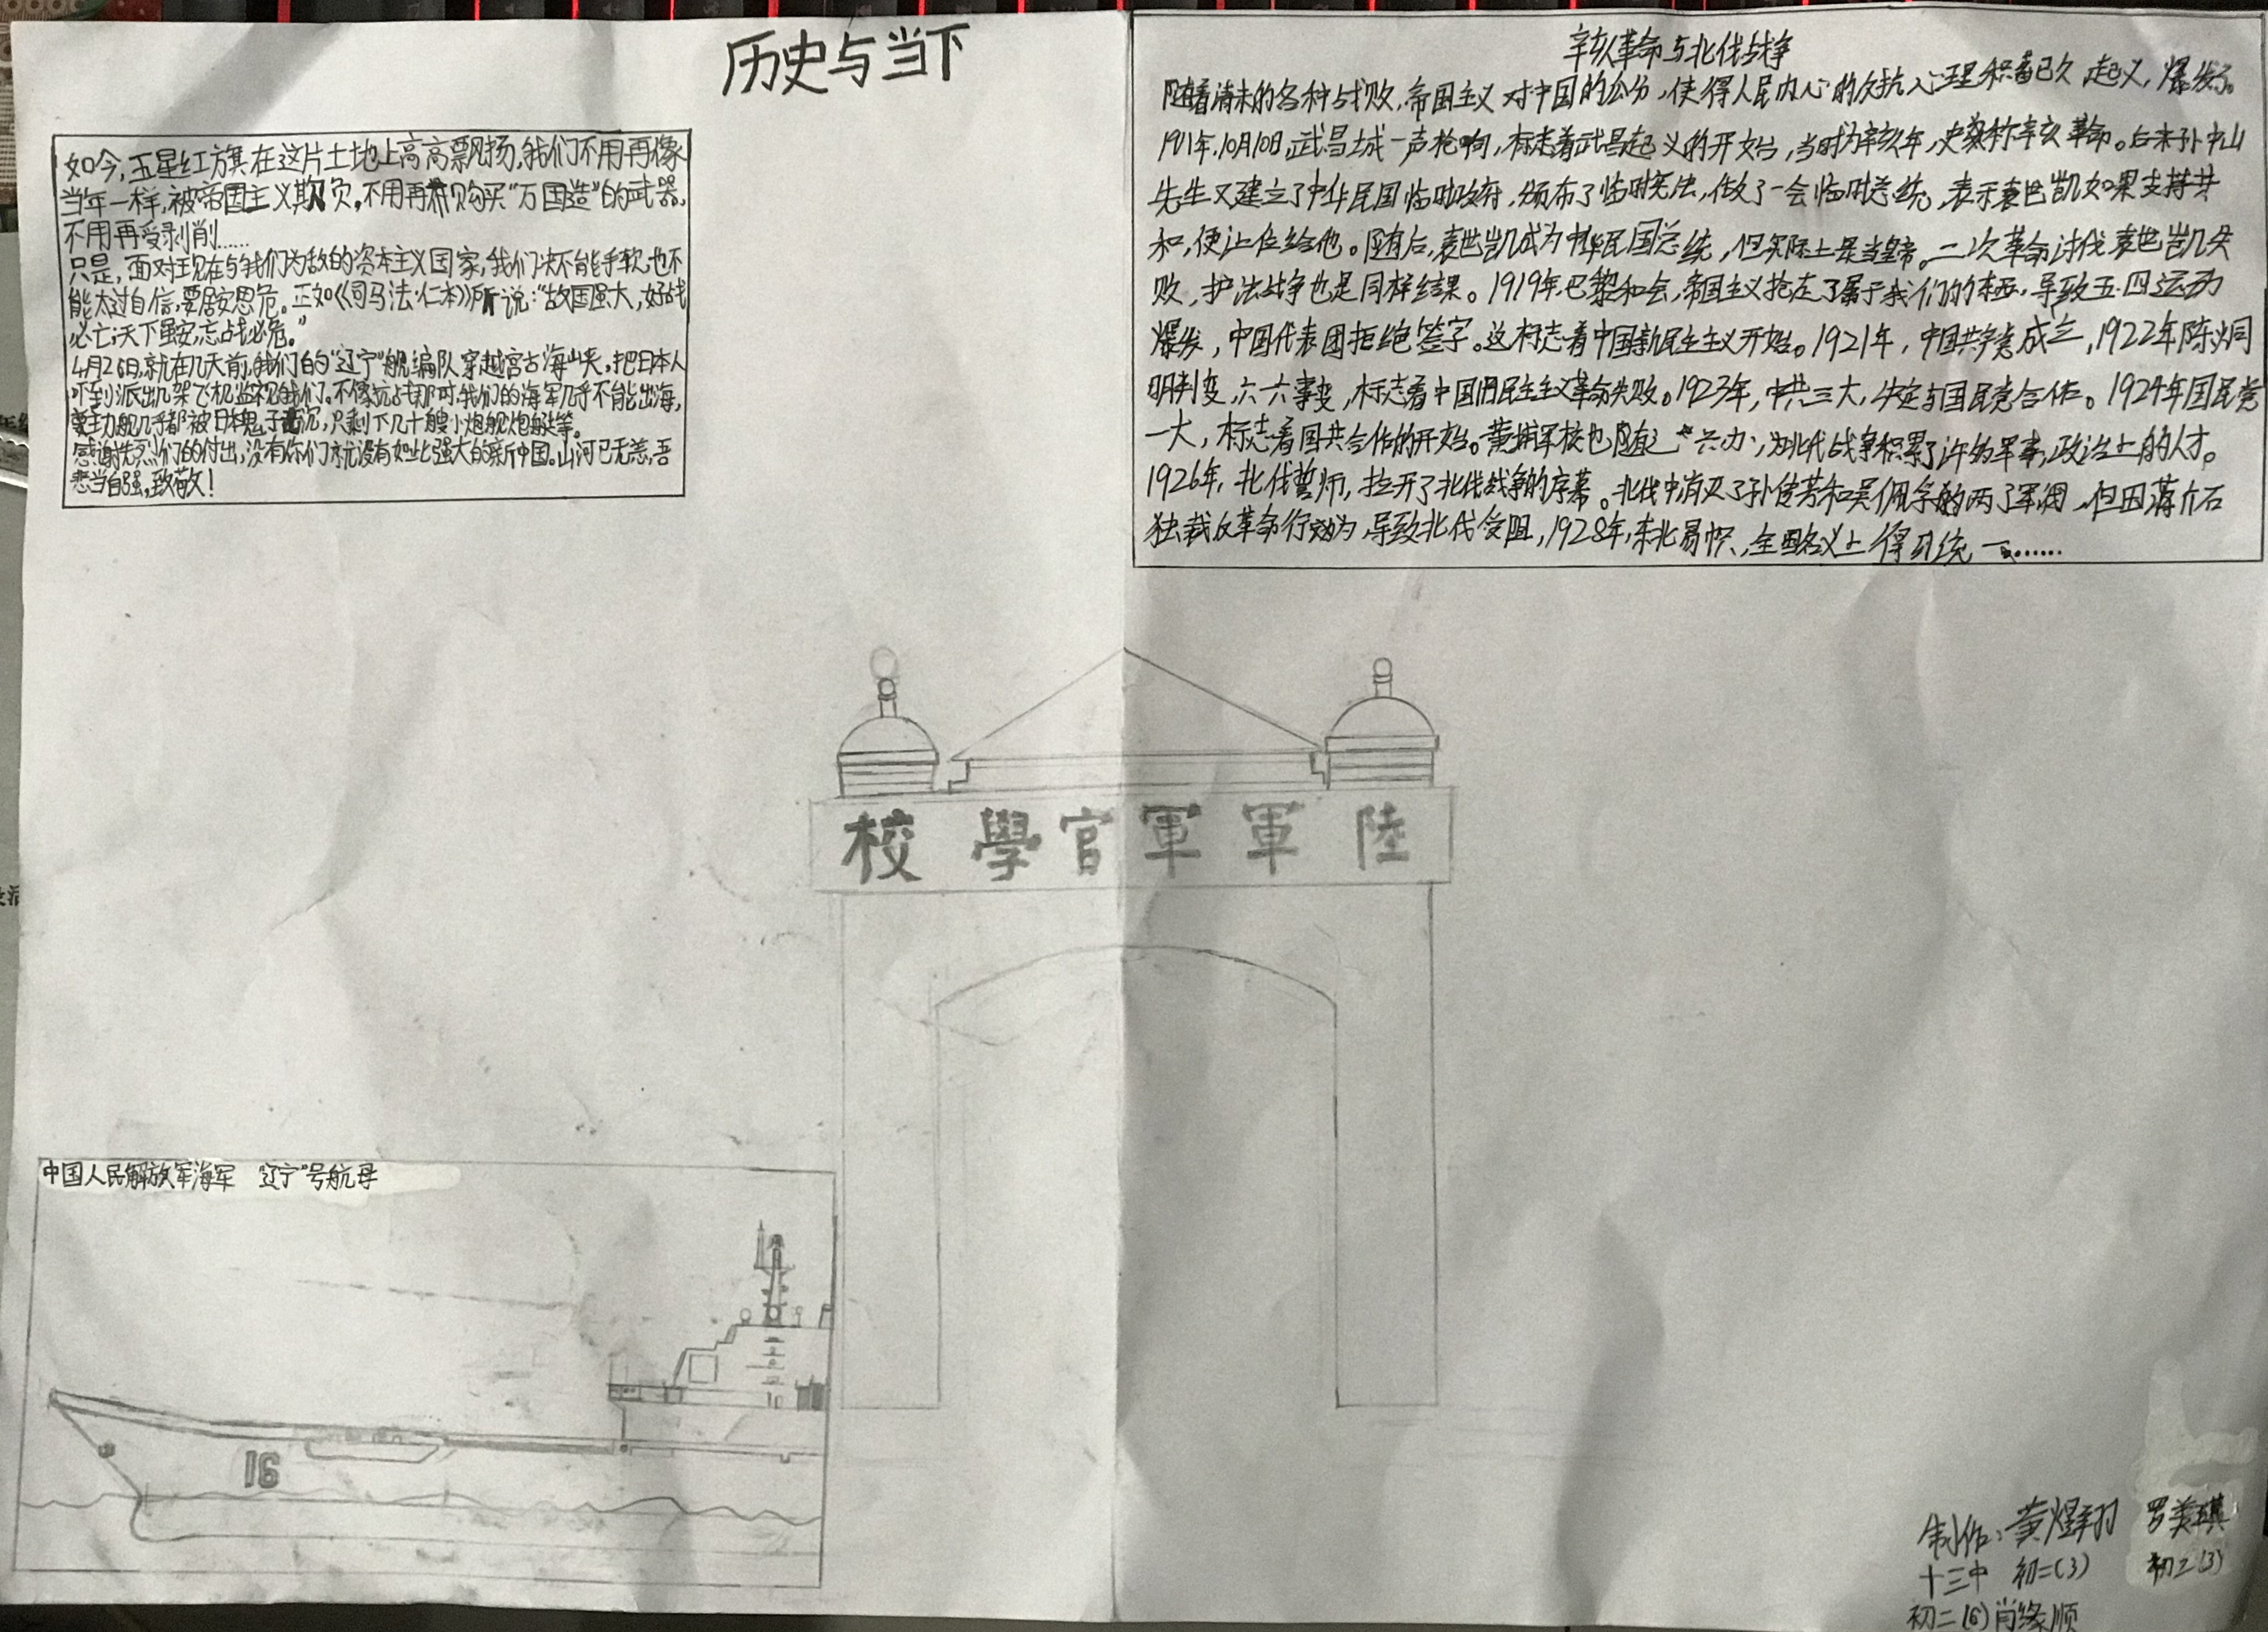 历史与当下
如今,五星红旗在这片土地上高高飘扬,我们不用再像
当年一样,被帝国主义欺负,不用再购买“万国造”的武器,
不用再受剥削……
只是,面对现在与我们为敌的资本主义国家,我们决不能手软,也不
能太过自信,要居安思危。正如《司马法·仁本》所说:“故国虽大,好战
必亡;天下虽安,忘战必危。”
4月26日,就在几天前,我们的“辽宁”舰编队穿越宫古海峡,把日本人
吓到派出几架飞机监视我们。不像抗战那时,我们的海军几乎不能出海,
主力舰几乎都被日本鬼子击沉,只剩下几十艘小炮舰炮艇等。
感谢先烈们的付出,没有你们就没有如此强大的新中国。山河已无恙,吾
辈当自强,致敬!
辛亥革命与北伐战争
随着清末的各种战败,帝国主义对中国的瓜分,使得人民内心的反抗心理积蓄已久,起义,爆发了。
1911年,10月10日,武昌城一声枪响,标志着武昌起义的开始,当时为辛亥年,史称辛亥革命。后来孙中山
先生又建立了中华民国临时政府,颁布了临时宪法,做了一会临时总统,表示袁世凯如果支持共
和,便让位给他。随后,袁世凯成为中华民国总统,但实际上是当皇帝。二次革命讨伐袁世凯失
败,护法战争也是同样结果。1919年,巴黎和会,帝国主义抢走了属于我们的东西,导致五·四运动
爆发,中国代表团拒绝签字。这标志着中国新民主主义开始。1921年,中国共产党成立,1922年陈炯
明判变,六·六事变,标志着中国旧民主主义革命失败。1923年,中共三大,决定与国民党合作。1924年国民党
一大,标志着国共合作的开始。黄埔军校也随之兴办,为北伐战争积累了许多军事,政治上的人才。
1926年,北伐誓师,拉开了北伐战争的序幕。北伐中消灭了孙传芳和吴佩孚的两个军阀,但因蒋介石
独裁反革命行为,导致北伐受阻,1928年,东北易帜,全国名义上得以统一……
校學官軍軍陸
中国人民解放军海军 “辽宁”号航母
16
制作:黄煜翔 罗美琪
十三中 初二(3) 初二(3)
初二(6)肖缘顺